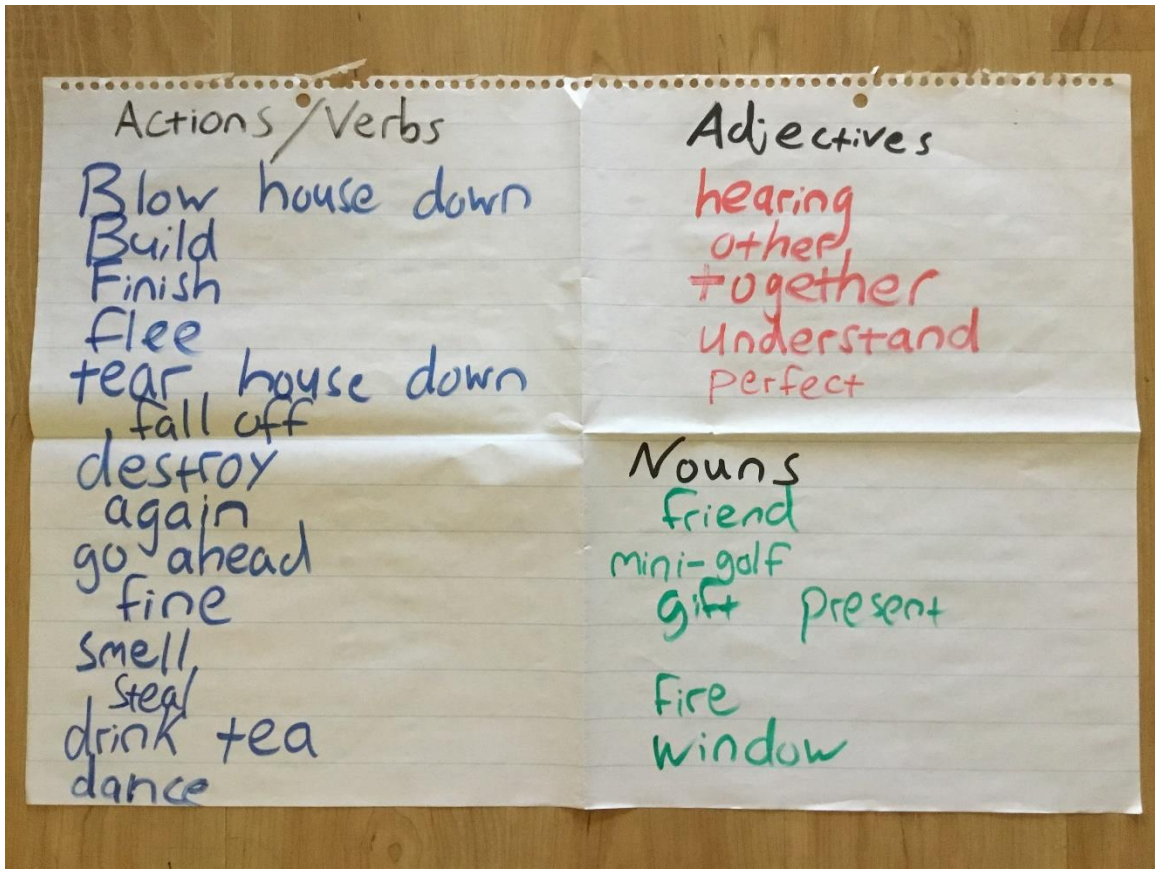 Actions/Verbs
Blow house down
Build
Finish
flee
tear house down
fall off
destroy
again
go ahead
fine
smell
steal
drink tea
dance
Adjectives
hearing
other
together
understand
perfect
Nouns
friend
mini-golf
gift present
fire
window